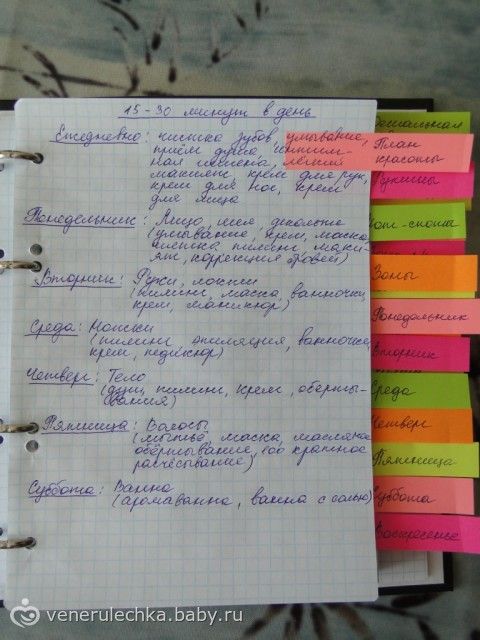 15-30 минут в день
Ежедневно: чистка зубов, умывание,
приём душа, интим-
ная гигиена, лёгкий
макияж, крем для рук,
крем для ног, крем
для лица
Понедельник: Лицо, шея, декольте
(умывание, крем, маска
чистка пилинг, маки-
яж, коррекция бровей)
Вторник: Руки, локти
(пилинг, маска, ванночки,
крем, маникюр)
Среда: Ноги
(пилинг, эпиляция, ванночки,
крем, педикюр)
Четверг: Тело
(душ, пилинг, крем, обёрты-
вания)
Пятница: Волосы
(мытьё, маска, масляное
обёртывание, 100 кратное
расчёсывание)
Суббота: Ванна
(аромаванна, ванна с солью)
План
красоты
Рутины
Зоны
Понедельник
Вторник
Среда
Четверг
Пятница
Суббота
Воскресенье
venerulechka.baby.ru